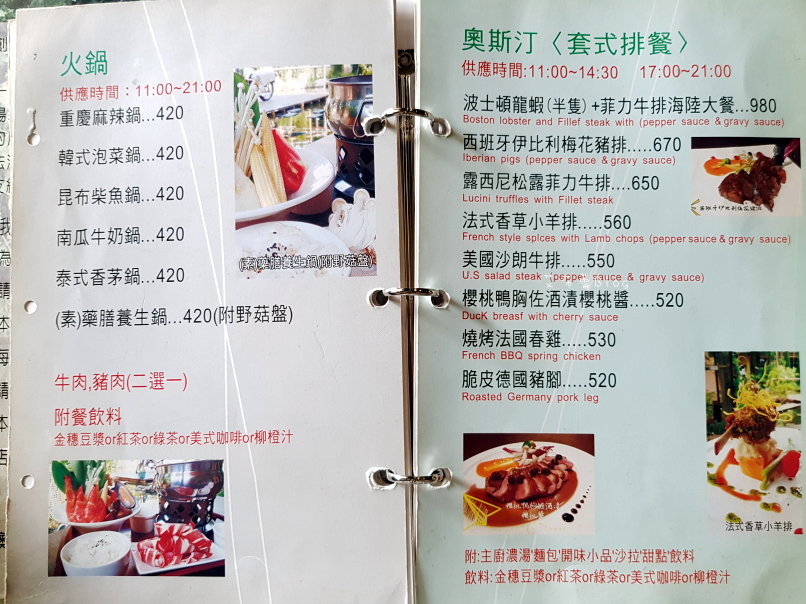 火鍋
供應時間：11:00~21:00
重慶麻辣鍋...420
韓式泡菜鍋...420
昆布柴魚鍋...420
南瓜牛奶鍋...420
泰式香茅鍋...420
(素)藥膳養生鍋...420(附野菇盤)
(素)藥膳養生鍋(附野菇盤)
牛肉,豬肉(二選一)
附餐飲料
金穗豆漿or紅茶or綠茶or美式咖啡or柳橙汁
奧斯汀〈套式排餐〉
供應時間:11:00~14:30 17:00~21:00
波士頓龍蝦(半隻)+菲力牛排海陸大餐...980
Boston lobster and Fillef steak with (pepper sauce & gravy sauce)
西班牙伊比利梅花豬排.....670
Iberian pigs (pepper sauce & gravy sauce)
露西尼松露菲力牛排....650
Lucini truffles with Fillet steak
法式香草小羊排.....560
French style spices with Lamb chops (pepper sauce & gravy sauce)
美國沙朗牛排.....550
U.S salad steak (pepper sauce & gravy sauce)
櫻桃鴨胸佐酒漬櫻桃醬.....520
Duck breasf with cherry sauce
燒烤法國春雞.....530
French BBQ spring chicken
脆皮德國豬腳.....520
Roasted Germany pork leg
西班牙伊比利梅花豬排
櫻桃鴨胸佐酒漬
櫻桃醬
法式香草小羊排
附:主廚濃湯'麵包'開味小品'沙拉'甜點'飲料
飲料:金穗豆漿or紅茶or綠茶or美式咖啡or柳橙汁